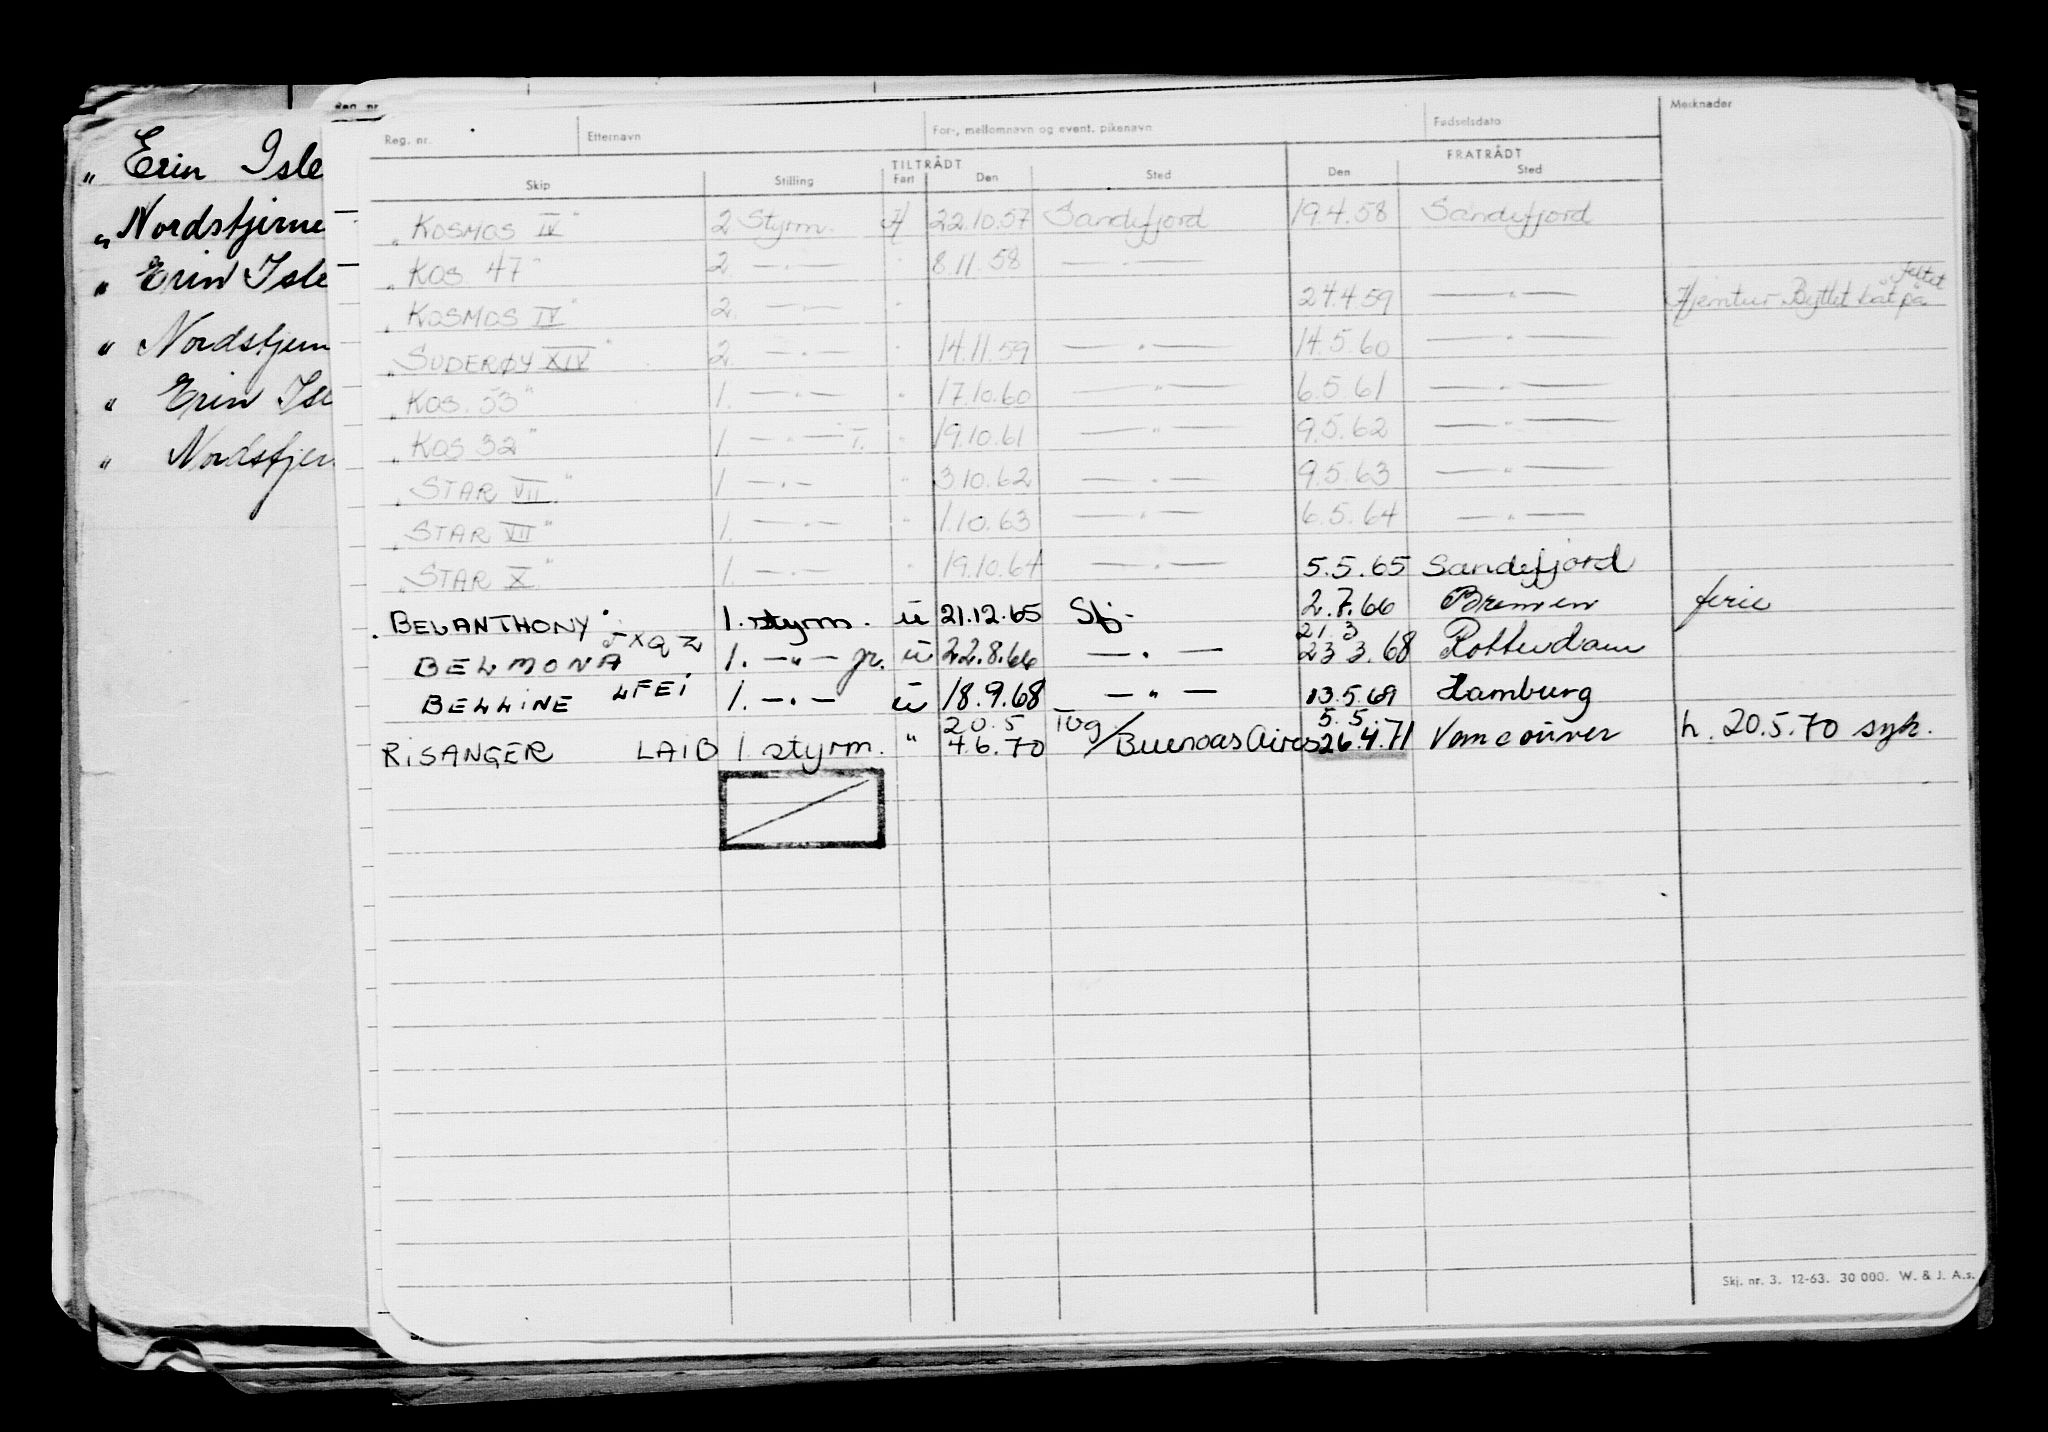 „ Erin Isle
„ Nordstjerne
„ Erin Isle
„ Nordstjern
„ Erin Isl
„ Nordstjer
Reg. nr.
Reg. nr. Etternavn For-, mellomnavn og event. pikenavn Fødselsdato Merknader
TILTRÅDT FRATRÅDT
Skip Stilling Fart Den Sted Den Sted
„KOSMOS IV" 2 Styrm. H 22.10.57 Sandefjord 19.4.58 Sandefjord
„KOS. 47" 2 —·— " 8.11.58 —·—
„KOSMOS IV" 2. —·— " 24.4.59 —"— Hjemtur. Byttet båt på feltet
„SUDERØY XIV" 2 —·— 14.11.59 —"— 14.5.60 —"—
„KOS. 53" 1. —·— " 17.10.60 —"— 6.5.61 —"—
„KOS 32" 1 —·— I. " 19.10.61 —"— 9.5.62 —"—
„STAR VII." 1 —·— " 3.10.62 —·— 9.5.63 —"—
„STAR VII" 1. —·— " 1.10.63 —·— 6.5.64 —"—
„STAR X." 1 —·— " 19.10.64 —·— 5.5.65 Sandefjord
BELANTHONY 1. styrm. u 21.12.65 Sfj. 2.7.66 Bremen ferie
BELMONA JXQZ 1. —"— jr. u 22.8.66 —·— 21.3 23 3.68 Rotterdam
BELLINE LFEI 1. —·— u 18.9.68 —"— 13.5.69 Hamburg
RISANGER LAIB 1 styrm. " 20.5 4.6.70 Tbg/Buenoas Aires 5.5. 26.4.71 Vancouver h. 20.5.70 syk.
Skj. nr. 3. 12-63. 30 000. W. & J. A.s.